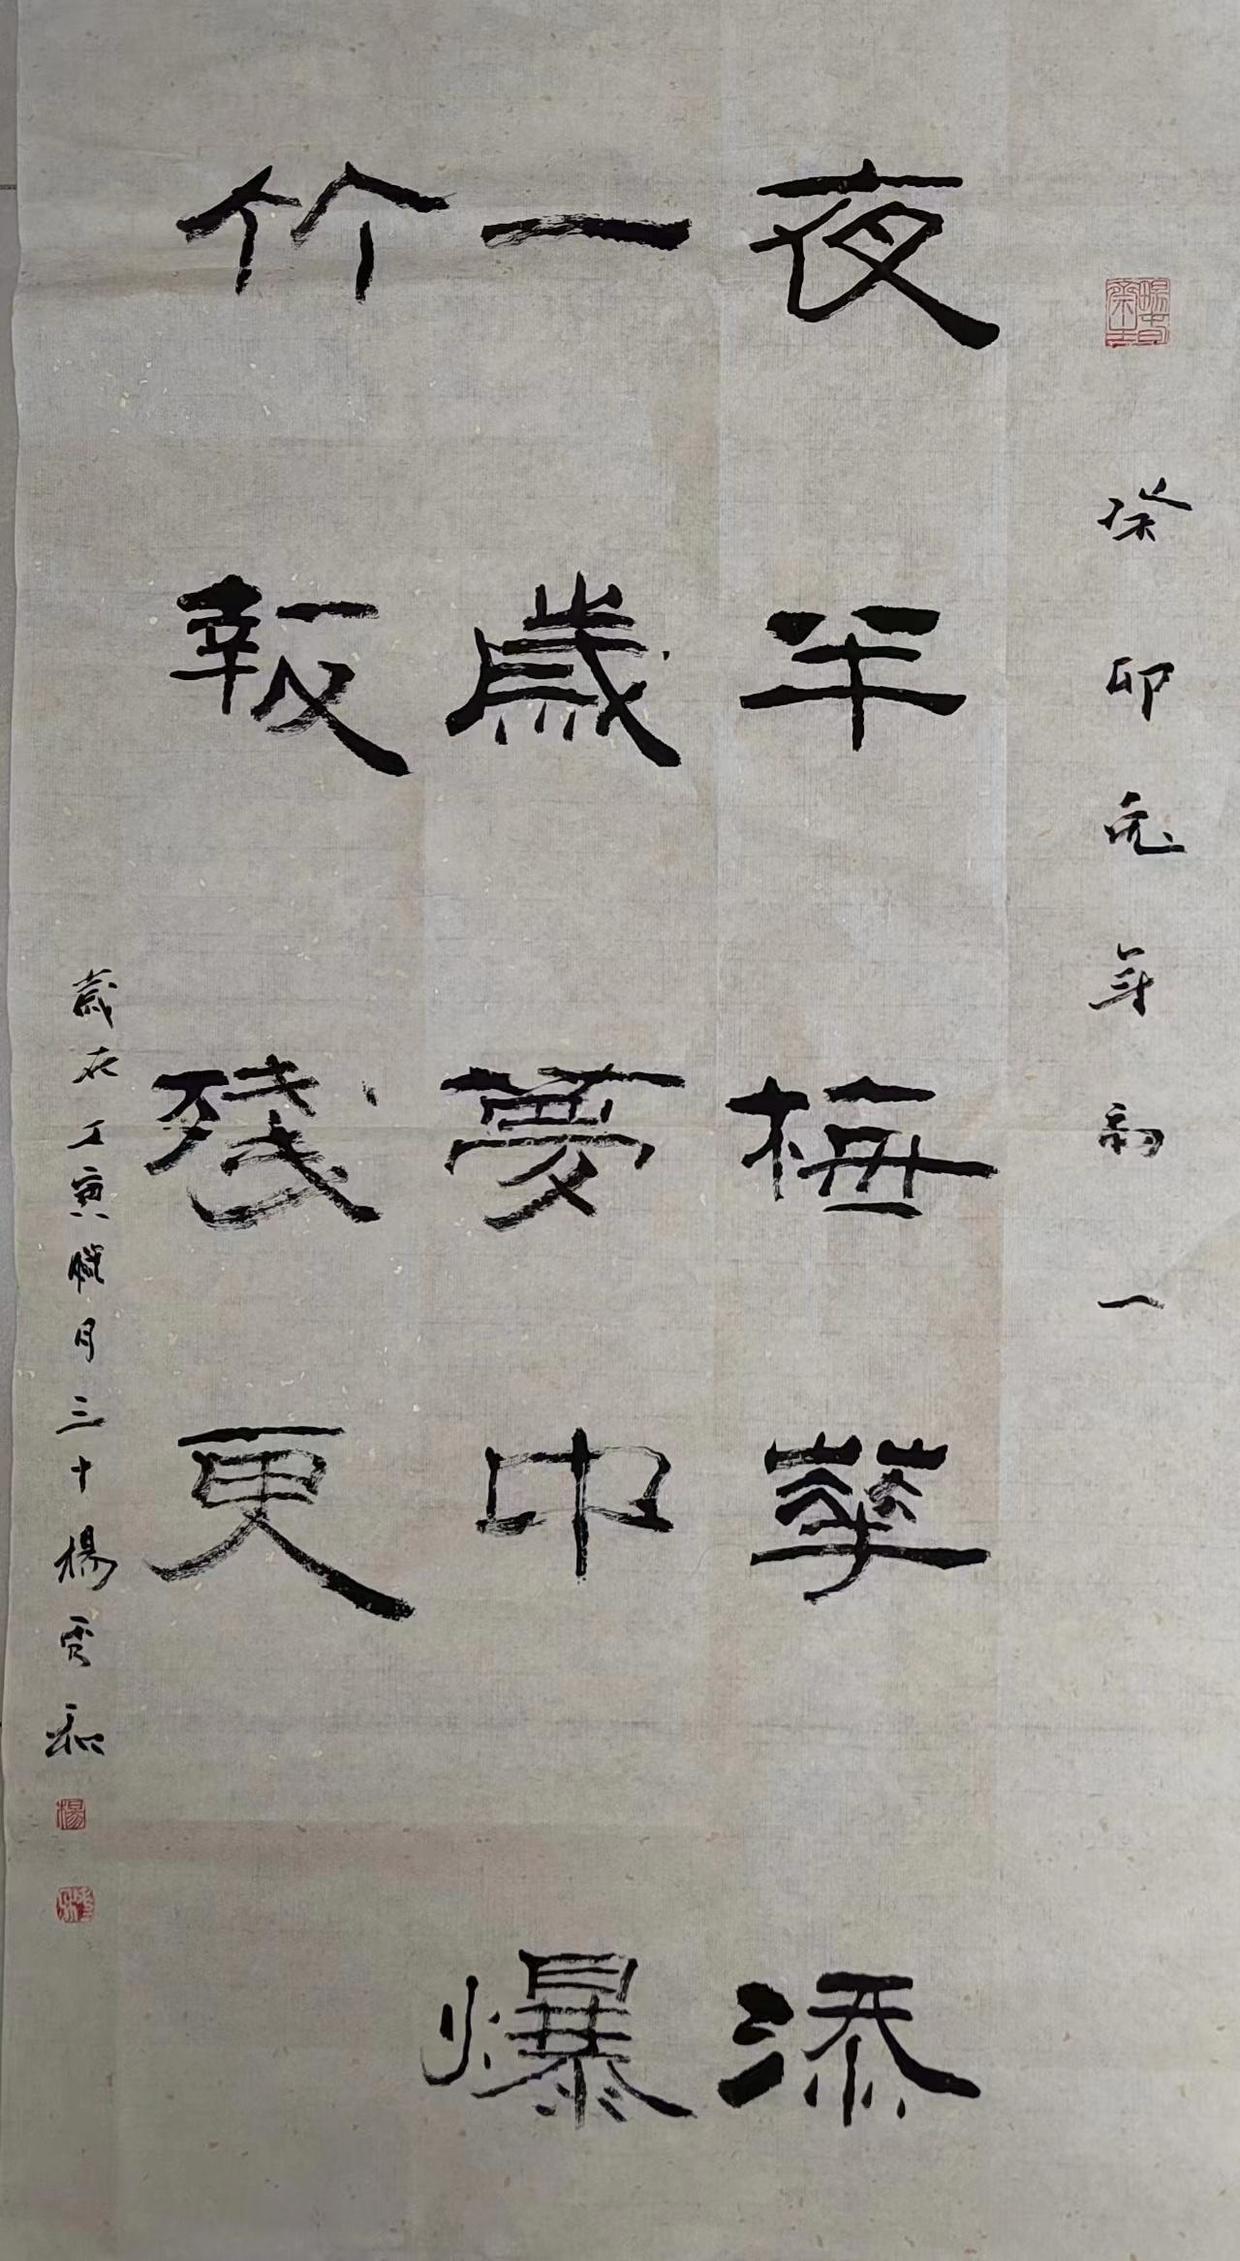 癸卯元年初一
夜半梅華添
一歲夢中爆
竹報殘更
歲在壬寅臘月三十楊雲和
楊